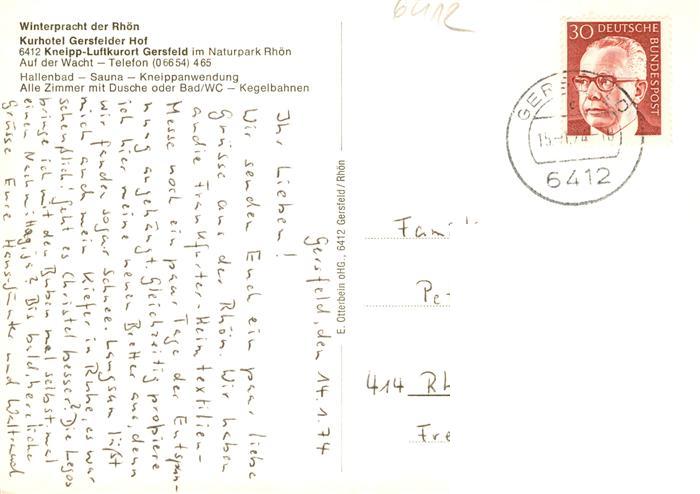 6412
Winterpracht der Rhön
Kurhotel Gersfelder Hof
6412 Kneipp-Luftkurort Gersfeld im Naturpark Rhön
Auf der Wacht – Telefon (06654) 465
Hallenbad – Sauna – Kneippanwendung
Alle Zimmer mit Dusche oder Bad/WC – Kegelbahnen
Gersfeld, den 14.1.74
Ihr Lieben!
Wir senden Euch ein paar liebe
Grüsse aus der Rhön. Wir haben
an die Frankfurter-Heimtextilien-
Messe noch ein paar Tage der Entspan-
nung angehängt. Gleichzeitig probiere
ich hier meine neuen Bretter aus, denn
wir fanden sogar Schnee. Langsam läßt
mich auch mein Kiefer in Ruhe, es war
schendlich! Geht es Christel besser? Die Legos
bringe ich mit den Buben mal selbst mal
einen Nachmittag ja? Bis bald, herzliche
Grüsse Eure Hans-Günter und Waltraud
E. Otterbein oHG., 6412 Gersfeld/Rhön
30 DEUTSCHE
BUNDESPOST
GERSFELD
6412
Fami
Pe
414 Rh
Fre